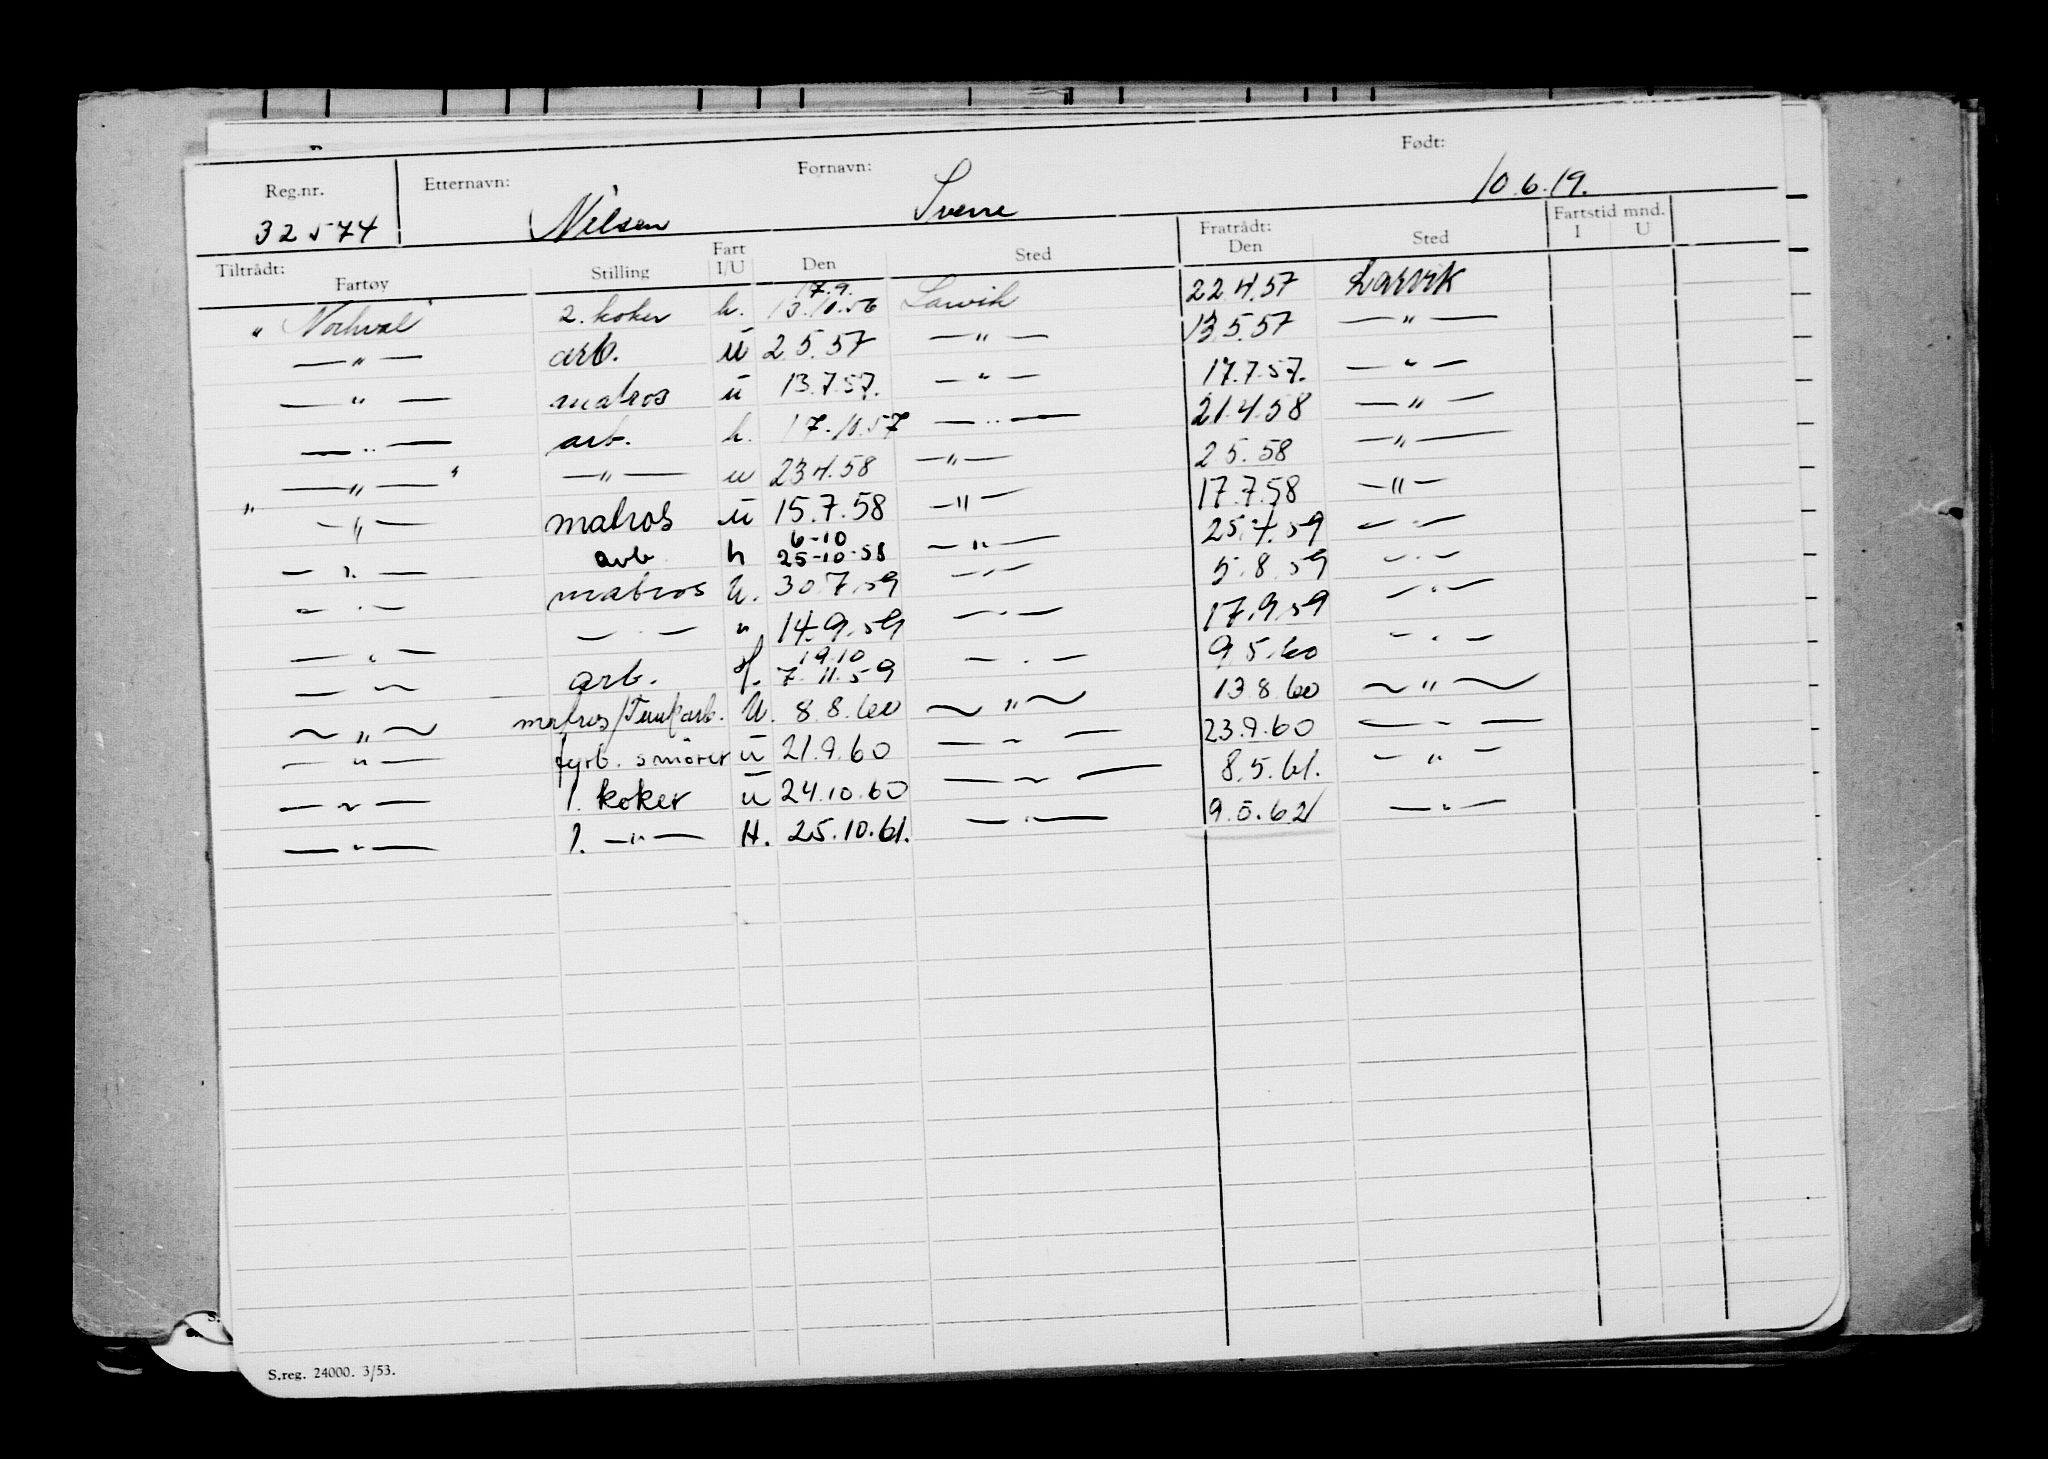 Reg.nr. Etternavn: Fornavn: Født:
32574 Nilsen Sverre 10.6.19.
Tiltrådt: Fratrådt: Fartstid mnd.
Fartøy Stilling Fart I/U Den Sted Den Sted I U
17.9.
" Norhval 2. koker h. 13.10.56 Larvik 22.4.57 Larvik
— " — arb. u 2.5.57 — " — 13.5.57 — " —
— " — matros u 13.7.57. — " — 17.7.57. — " —
— " — arb. h. 17.10.57 — " — 21.4.58 — " —
— " — " — " — u 23.4.58 — " — 2.5.58 — " —
" — " — matros u 15.7.58 — " — 17.7.58 — " —
6-10
— " — arb h 25-10-58 — " — 25.4.59 — " —
— " — matros U. 30.7.59 — " — 5.8.59 — " —
— " — — " — " 14.9.59 — " — 17.9.59 — " —
19.10
— " — arb. H. 7.11.59 — " — 9.5.60 — " —
— " — matros/Tankarb. U. 8.8.60 — " — 13.8.60 — " —
— " — fyrb. smører u 21.9.60 — " — 23.9.60 — " —
— " — 1. koker u 24.10.60 — " — 8.5.61. — " —
— " — 1. — " — H. 25.10.61. — " — 9.5.62 — " —
S.reg. 24000. 3/53.